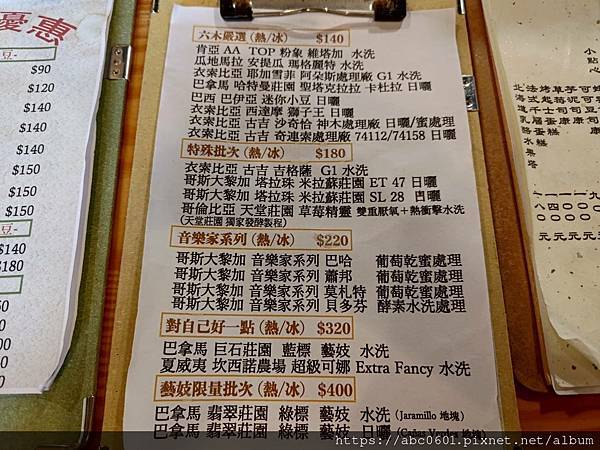 優惠
豆-
$90
$120
$140
$140
$150
$150
$150
豆-
$140
$180
六木嚴選 (熱/冰) $140
肯亞 AA TOP 粉象 維塔加 水洗
瓜地馬拉 安提瓜 瑪格麗特 水洗
衣索比亞 耶加雪菲 阿朵斯處理廠 G1 水洗
巴拿馬 哈特曼莊園 聖塔克拉拉 卡杜拉 日曬
巴西 巴伊亞 迷你小豆 日曬
衣索比亞 西達摩 獅子王 日曬
衣索比亞 古吉 沙奇恰 神木處理廠 日曬/蜜處理
衣索比亞 古吉 奇連索處理廠 74112/74158 日曬
特殊批次 (熱/冰) $180
衣索比亞 古吉 吉格薩 G1 水洗
哥斯大黎加 塔拉珠 米拉蘇莊園 ET 47 日曬
哥斯大黎加 塔拉珠 米拉蘇莊園 SL 28 日曬
哥倫比亞 天堂莊園 草莓精靈 雙重厭氧+熱衝擊水洗
(天堂莊園 獨家發酵製程)
音樂家系列 (熱/冰) $220
哥斯大黎加 音樂家系列 巴哈 葡萄乾蜜處理
哥斯大黎加 音樂家系列 蕭邦 葡萄乾蜜處理
哥斯大黎加 音樂家系列 莫札特 葡萄乾蜜處理
哥斯大黎加 音樂家系列 貝多芬 酵素水洗處理
對自己好一點 (熱/冰) $320
巴拿馬 巨石莊園 藍標 藝妓 水洗
夏威夷 坎西諾農場 超級可娜 Extra Fancy 水洗
藝妓限量批次 (熱/冰) $400
巴拿馬 翡翠莊園 綠標 藝妓 水洗 (Jaramillo 地塊)
巴拿馬 翡翠莊園 綠標 藝妓 日曬 (Cañas Verdes 地塊)
小點心
https://abc0601.pixnet.net/album